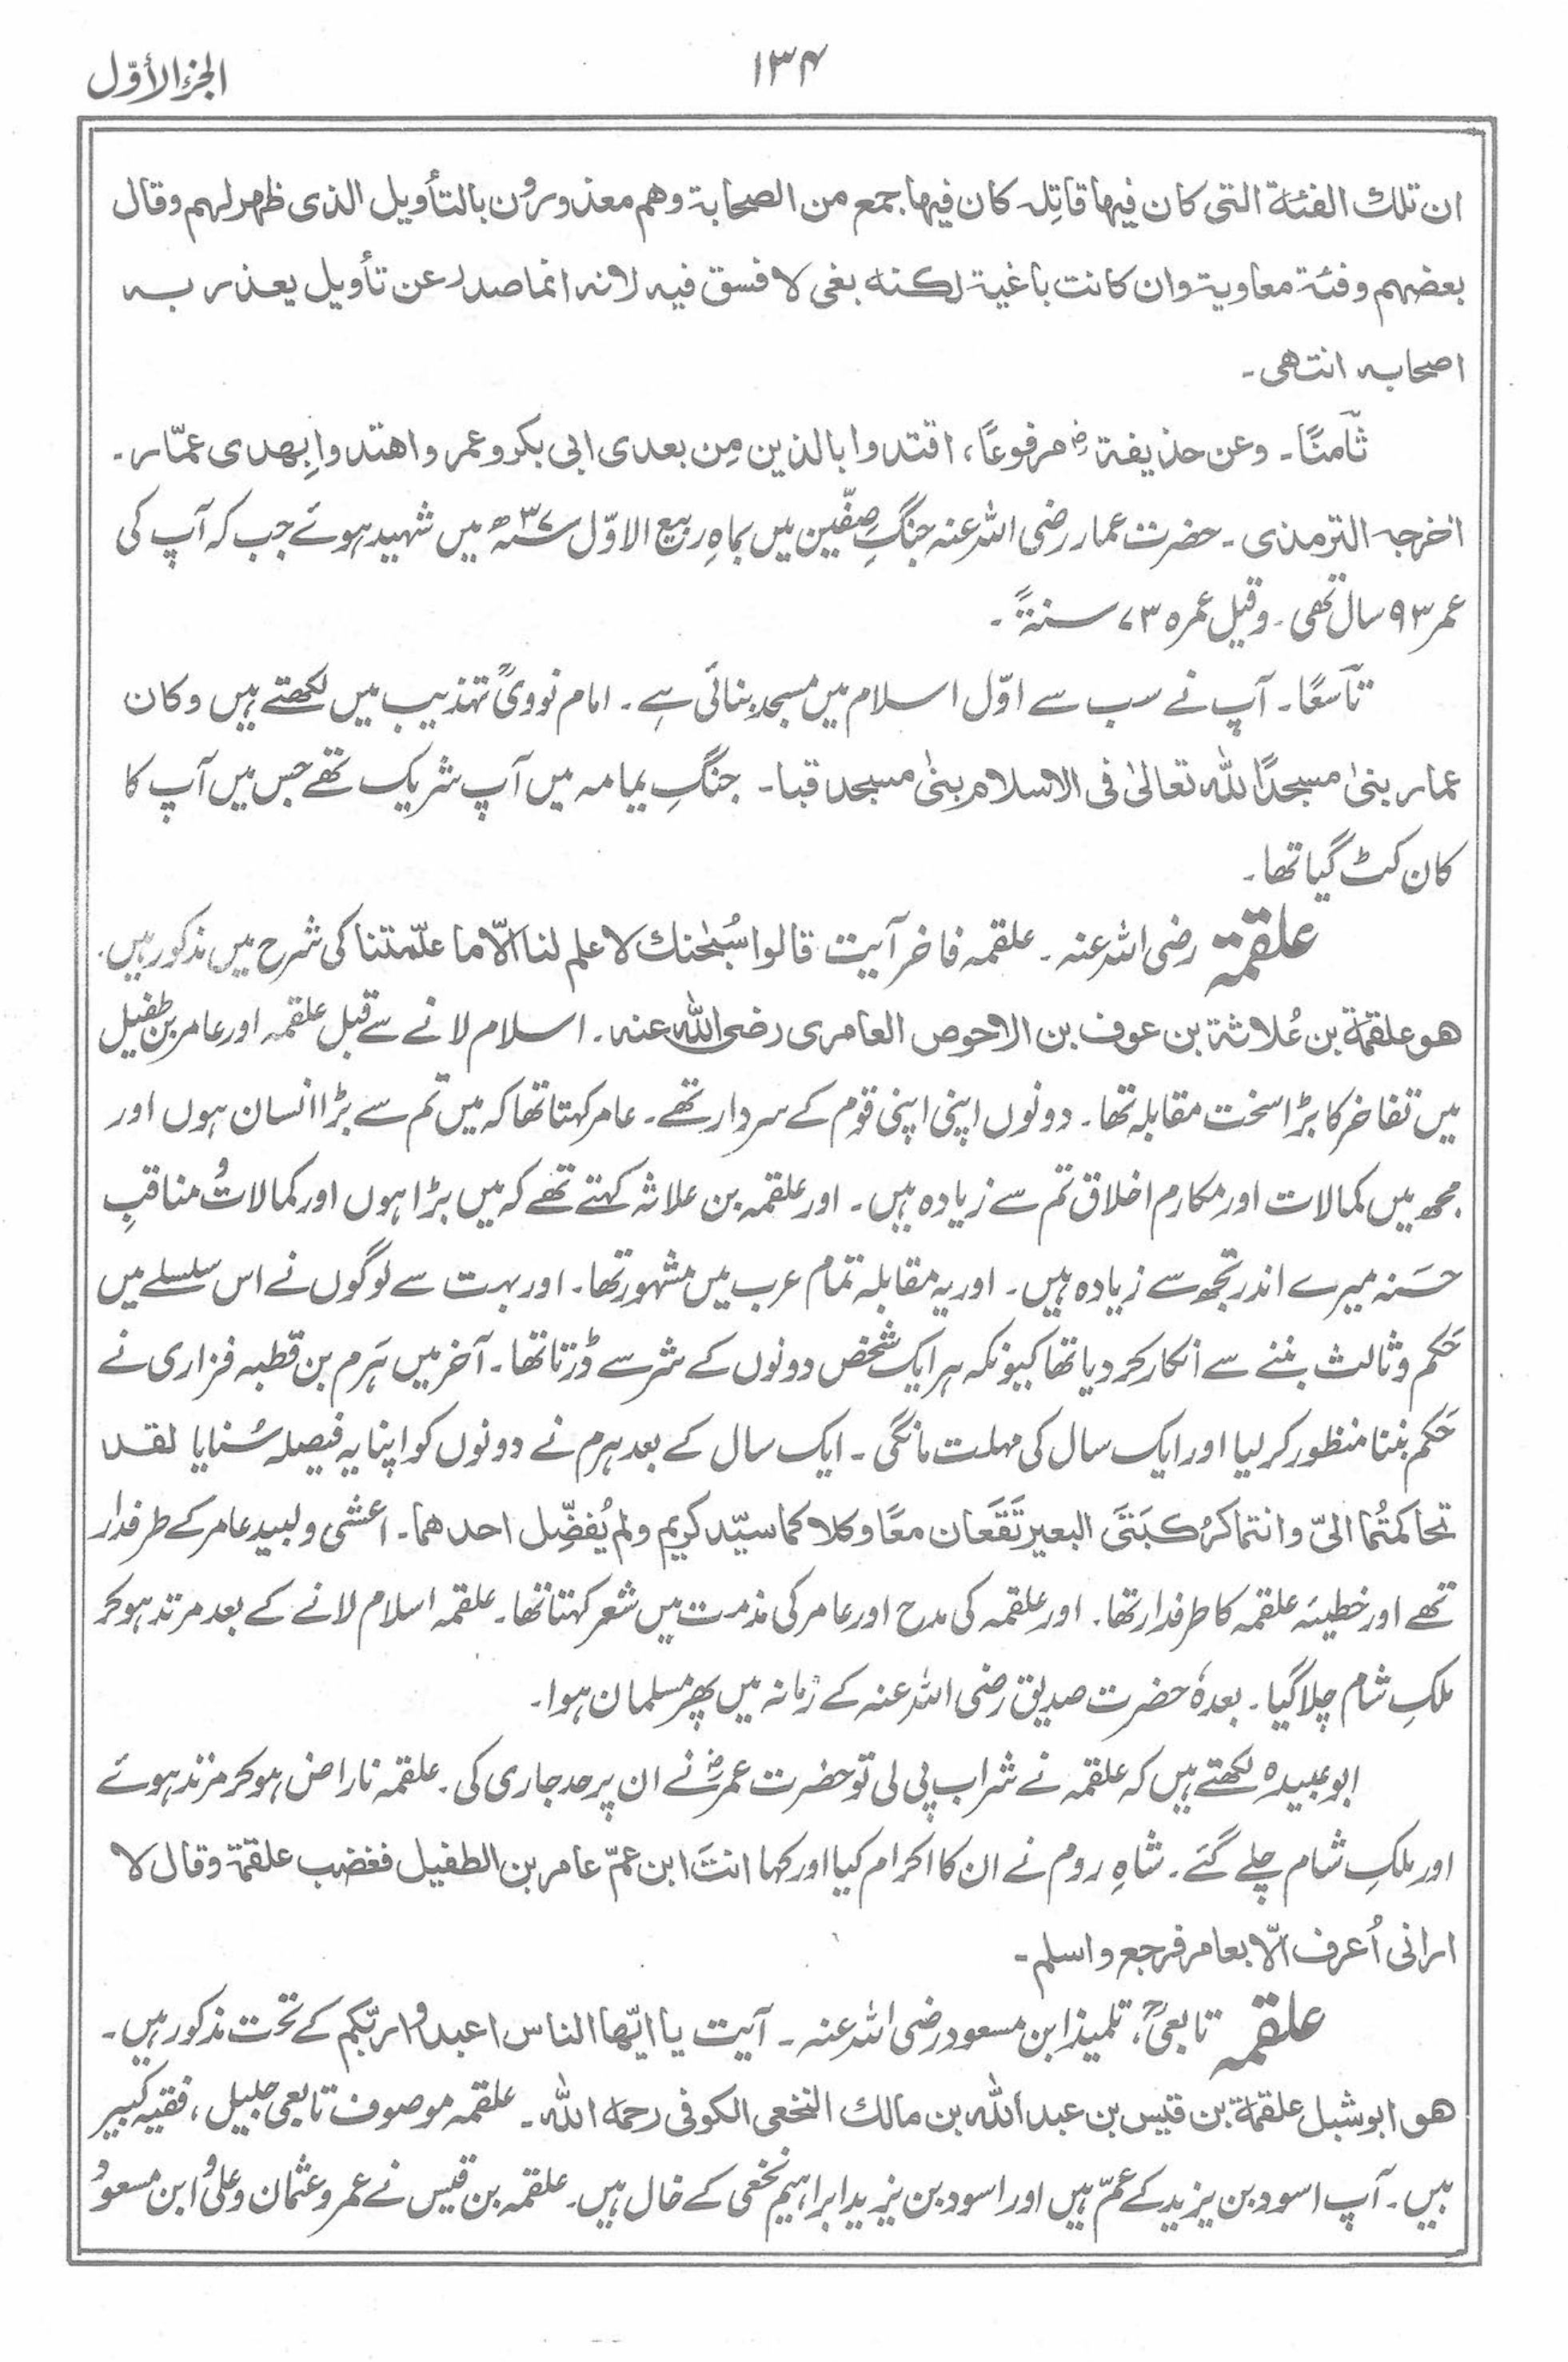 الجزء الأوّل
۱۳۴
ان تلك الفئة التی کان فیها قاتِله کان فیها جمع من الصحابة وهم معذورون بالتأویل الذی ظهر لهم وقال
بعضهم وفئة معاویة وان کانت باغیة لکنه بغی لا فسق فیه لانه انما صدر عن تأویل یعذر به
اصحابه انتهی۔
ثامنًا۔ وعن حذیفة رض مرفوعًا، اقتدوا بالذین مِن بعدی ابی بکر وعمر واهتدوا بِهدی عمّار۔
اخرجه الترمذی۔ حضرت عمار رضی اللہ عنہ جنگِ صفّین میں بماہِ ربیع الاوّل ۳۷ھ میں شہید ہوئے جب کہ آپ کی
عمر ۹۳ سال تھی۔ وقیل عمره ۷۳ سنةً۔
تاسعًا۔ آپ نے سب سے اوّل اسلام میں مسجد بنائی ہے۔ امام نوویؒ تہذیب میں لکھتے ہیں وکان
عمار بنیٰ مسجدًا للّٰه تعالیٰ فی الاسلام بنیٰ مسجد قبا۔ جنگِ یمامہ میں آپ شریک تھے جس میں آپ کا
کان کٹ گیا تھا۔
علقمة رضی اللہ عنہ۔ علقمہ فاخر آیت قالوا سُبْحٰنك لا علم لنا الّا ما علّمتنا کی شرح میں مذکور ہیں۔
هو علقمة بن عُلاثة بن عوف بن الاحوص العامری رضی اللّٰه عنه۔ اسلام لانے سے قبل علقمہ اور عامر بن طفیل
میں تفاخر کا بڑا سخت مقابلہ تھا۔ دونوں اپنی اپنی قوم کے سردار تھے۔ عامر کہتا تھا کہ میں تم سے بڑا انسان ہوں اور
مجھ میں کمالات اور مکارم اخلاق تم سے زیادہ ہیں۔ اور علقمہ بن علاثہ کہتے تھے کہ میں بڑا ہوں اور کمالات و مناقبِ
حسَنہ میرے اندر تجھ سے زیادہ ہیں۔ اور یہ مقابلہ تمام عرب میں مشہور تھا۔ اور بہت سے لوگوں نے اس سلسلے میں
حَکم و ثالث بننے سے انکار کر دیا تھا کیونکہ ہر ایک شخص دونوں کے شر سے ڈرتا تھا۔ آخر میں ہَرم بن قطبہ فزاری نے
حَکم بننا منظور کر لیا اور ایک سال کی مہلت مانگی۔ ایک سال کے بعد ہرم نے دونوں کو اپنا یہ فیصلہ سُنایا لقد
تحاکمتُما الیّ وانتما کرُکبَتَی البعیر تَقَعَان معًا وکلاکما سیّد کریم ولم یُفضِّل احدهما۔ اعشی و لبید عامر کے طرفدار
تھے اور خطیئہ علقمہ کا طرفدار تھا۔ اور علقمہ کی مدح اور عامر کی مذمت میں شعر کہتا تھا۔ علقمہ اسلام لانے کے بعد مرتد ہو کر
ملکِ شام چلا گیا۔ بعدہٗ حضرت صدیق رضی اللہ عنہ کے زمانہ میں پھر مسلمان ہوا۔
ابوعبیدہ لکھتے ہیں کہ علقمہ نے شراب پی لی تو حضرت عمرؓ نے ان پر حد جاری کی۔ علقمہ ناراض ہو کر مرتد ہوئے
اور ملکِ شام چلے گئے۔ شاہِ روم نے ان کا اکرام کیا اور کہا انتَ ابن عمّ عامر بن الطفیل فغضب علقمة وقال لا
ارانی اُعرف الّا بعامر فرجع واسلم۔
علقمہ تابعیؒ، تلمیذ ابن مسعود رضی اللہ عنہ۔ آیت یا ایّها الناس اعبدوا ربّکم کے تحت مذکور ہیں۔
هو ابوشبل علقمة بن قیس بن عبد اللّٰه بن مالك النخعی الکوفی رحمه اللّٰه۔ علقمہ موصوف تابعی جلیل، فقیہ کبیر
ہیں۔ آپ اسود بن یزید کے عمّ ہیں اور اسود بن یزید ابراہیم نخعی کے خال ہیں۔ علقمہ بن قیس نے عمر و عثمان و علی و ابن مسعود